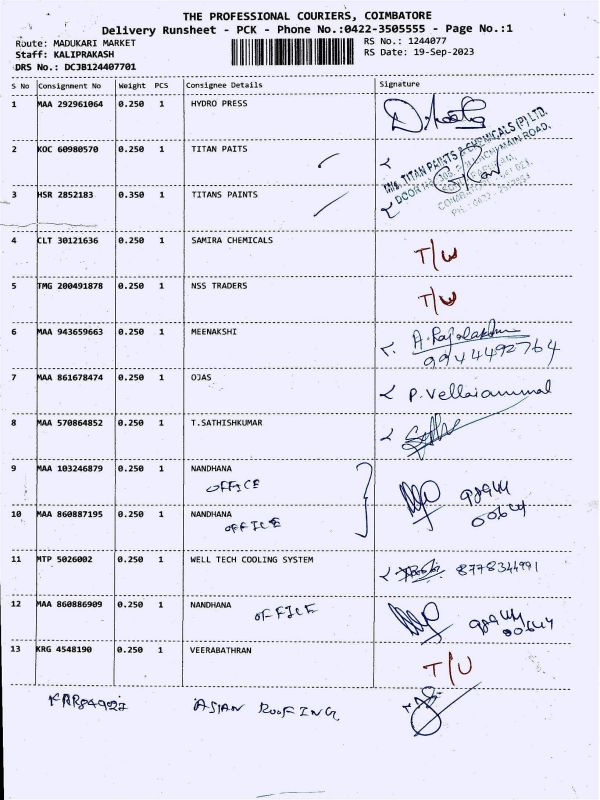 THE PROFESSIONAL COURIERS, COIMBATORE
Delivery Runsheet - PCK - Phone No.:0422-3505555 - Page No.:1
Route: MADUKARI MARKET RS No.: 1244077
Staff: KALIPRAKASH RS Date: 19-Sep-2023
DRS No.: DCJB124407701
S No Consignment No Weight PCS Consignee Details Signature
1 MAA 292961064 0.250 1 HYDRO PRESS
2 KOC 60980570 0.250 1 TITAN PAITS
M/s. TITAN PAINTS & CHEMICALS (P) LTD.
3 HSR 2852183 0.350 1 TITANS PAINTS
4 CLT 30121636 0.250 1 SAMIRA CHEMICALS T/W
5 TMG 200491878 0.250 1 NSS TRADERS T/W
6 MAA 943659663 0.250 1 MEENAKSHI
9944492764
7 MAA 861678474 0.250 1 OJAS P. Vellaiammal
8 MAA 570864852 0.250 1 T.SATHISHKUMAR
9 MAA 103246879 0.250 1 NANDHANA
OFFICE
10 MAA 860887195 0.250 1 NANDHANA
OFFICE
11 MTP 5026002 0.250 1 WELL TECH COOLING SYSTEM 8778344991
12 MAA 860886909 0.250 1 NANDHANA
OFFICE
13 KRG 4548190 0.250 1 VEERABATHRAN T/U
ASIAN ROOFING